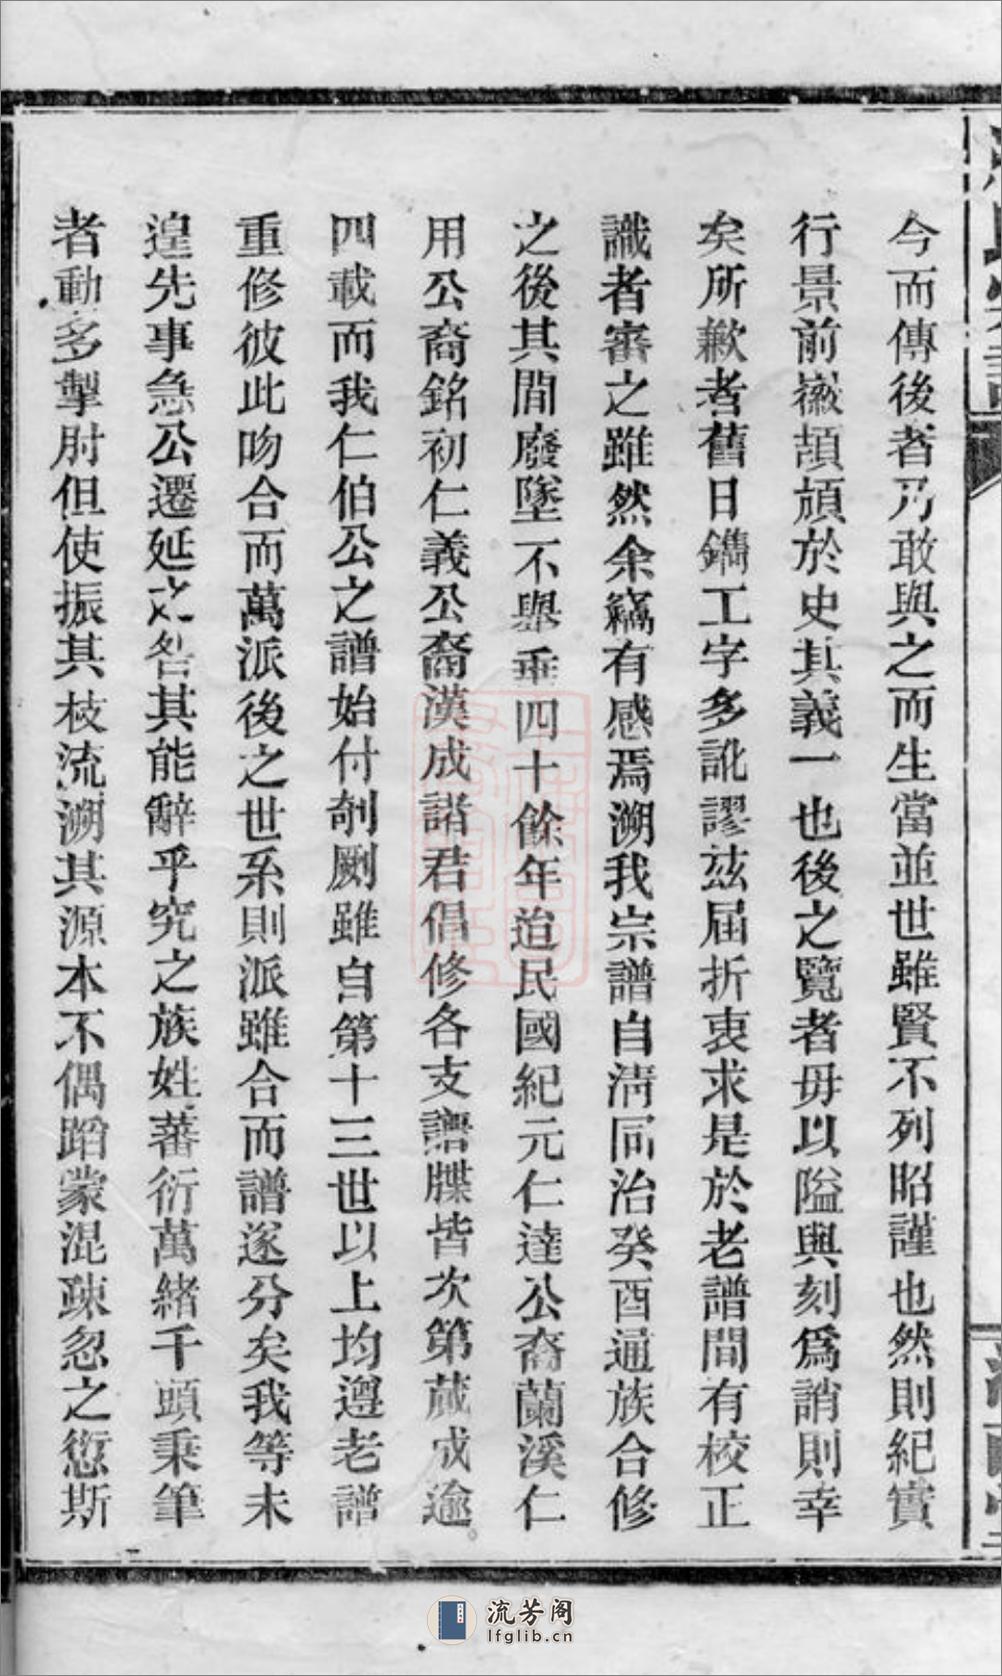 今而傳後者乃敢與之而生當並世雖賢不列昭謹也然則紀實
行景前徽頡頏於史其義一也後之覽者毋以隘與刻爲誚則幸
矣所歉者舊日鐫工字多訛謬茲屆折衷求是於老譜間有校正
識者審之雖然余竊有感焉溯我宗譜自淸同治癸酉通族合修
之後其間廢墜不舉垂四十餘年迨民國紀元仁達公裔蘭溪仁
用公裔銘初仁義公裔漢成諸君倡修各支譜牒皆次第蕆成逾
四載而我仁伯公之譜始付剞劂雖自第十三世以上均遵老譜
重修彼此吻合而萬派後之世系則派雖合而譜遂分矣我等未
遑先事急公遷延之咎其能辭乎究之族姓蕃衍萬緒千頭秉筆
者動多掣肘但使振其枝流溯其源本不偶蹈蒙混疎忽之愆斯
流芳阁
lfglib.cn